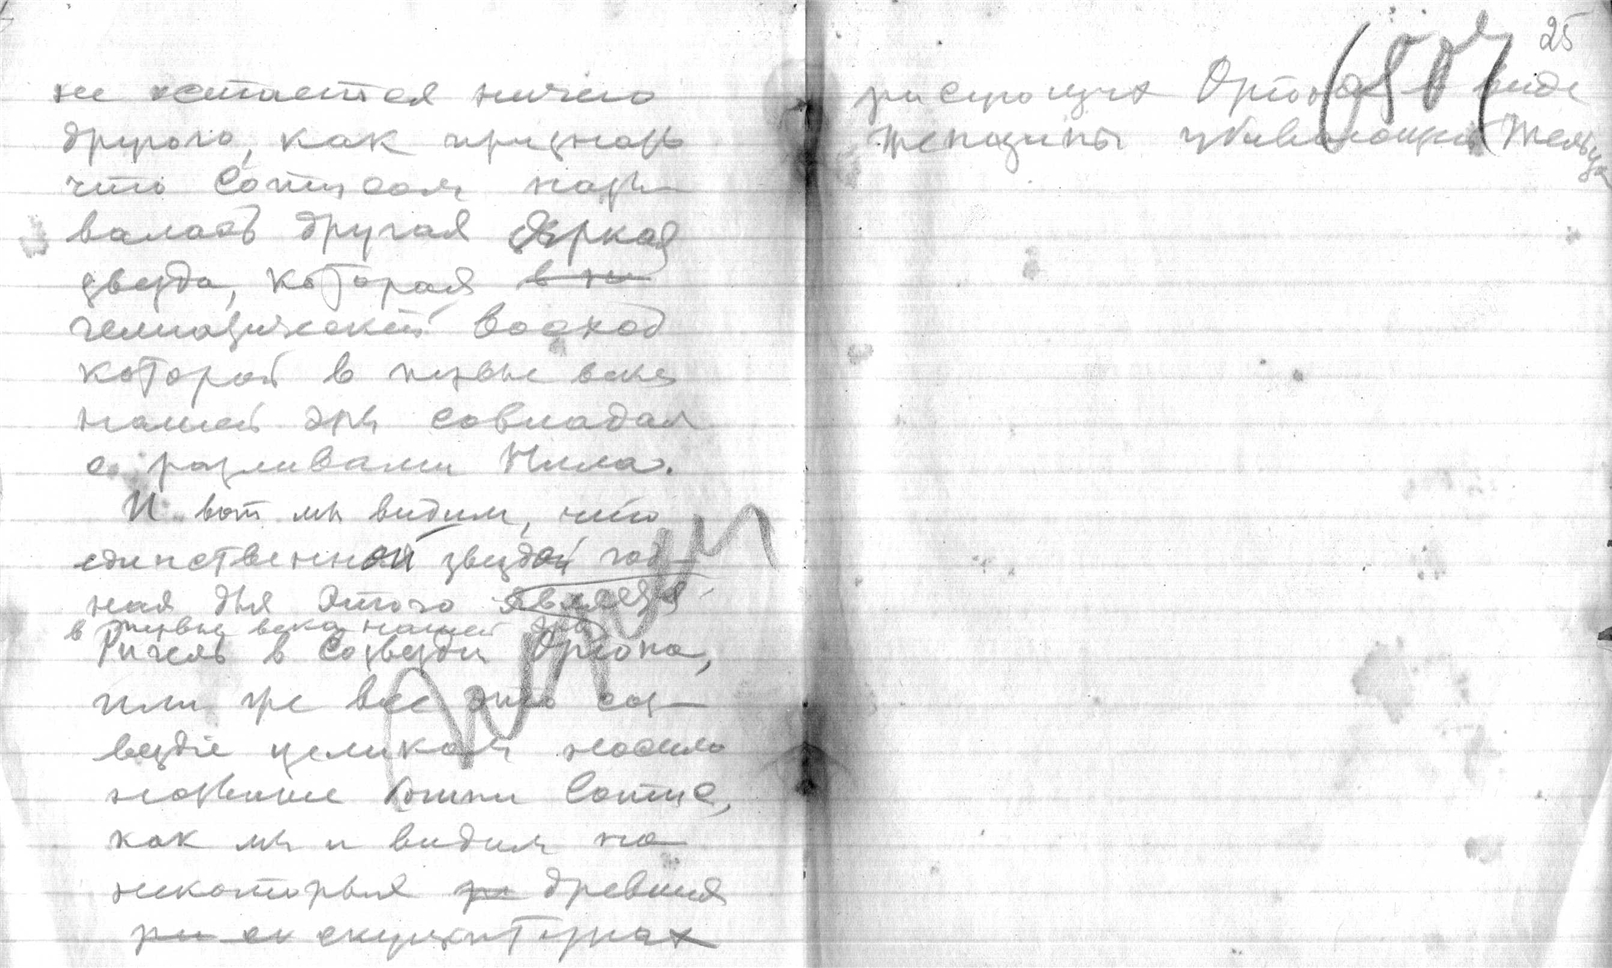 не остается ничего
другого, как признать
что Сотисом назы-
валась другая яркая
звезда, которая в
гелиактический восход
которой в первые века
нашей эры совпадал
с разливами Нила.
И вот мы видим, что
единственной звездой год-
ная для этого является
в первые века нашей эры
Ригель в созвездии Ориона,
или же все это соз-
вездие целиком носило
название богини Сотис,
как мы и видим на
некоторых древних
скульптурах
25
рисующих Ориона в виде
женщины убивающей Тельца